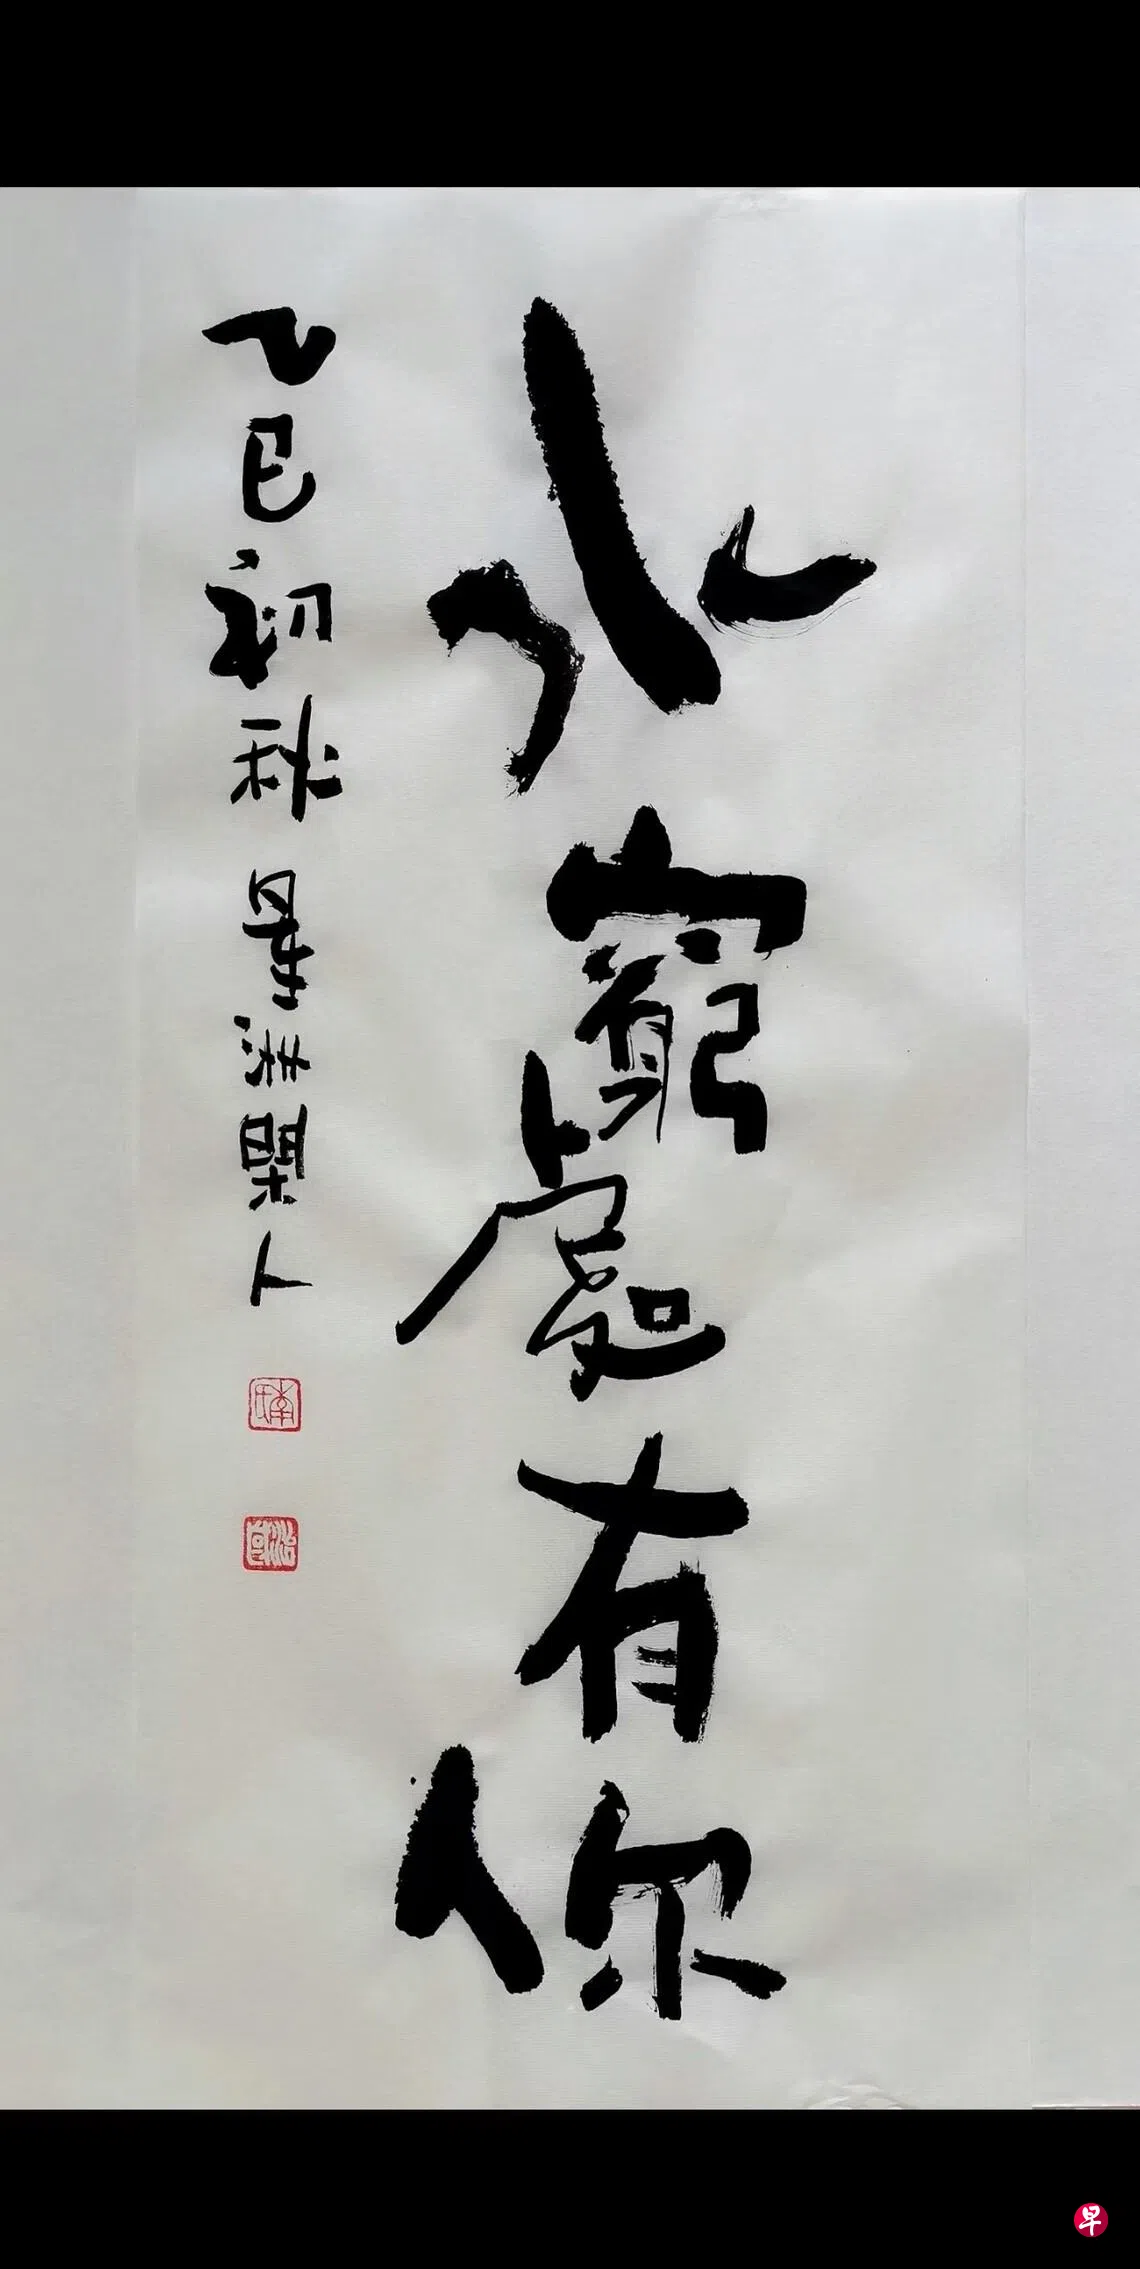 水窮處有你
乙巳初秋 星洲閑人
早